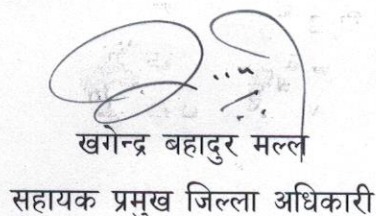 खगेन्द्र बहादुर मल्ल
सहायक प्रमुख जिल्ला अधिकारी